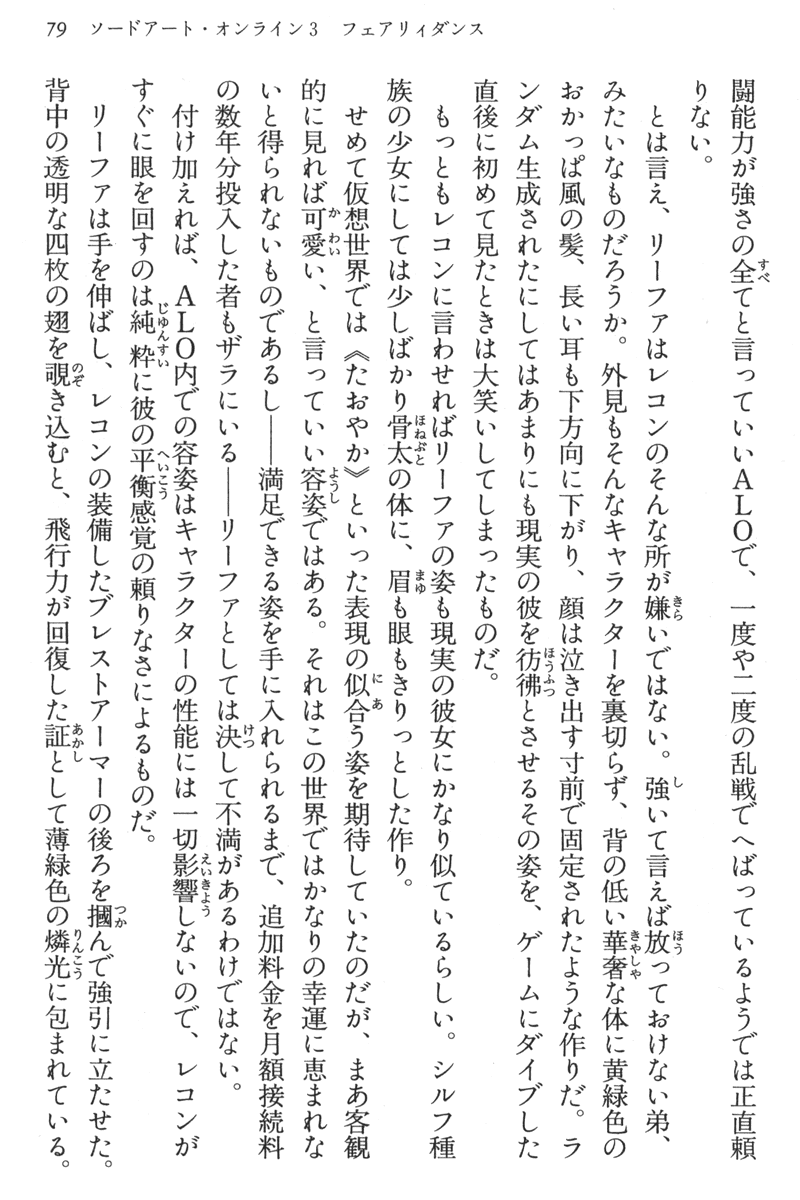 79 ソードアート・オンライン3 フェアリィダンス
闘能力が強さの全てと言っていいALOで、一度や二度の乱戦でへばっているようでは正直頼
りない。
とは言え、リーファはレコンのそんな所が嫌いではない。強いて言えば放っておけない弟、
みたいなものだろうか。外見もそんなキャラクターを裏切らず、背の低い華奢な体に黄緑色の
おかっぱ風の髪、長い耳も下方向に下がり、顔は泣き出す寸前で固定されたような作りだ。ラ
ンダム生成されたにしてはあまりにも現実の彼を彷彿とさせるその姿を、ゲームにダイブした
直後に初めて見たときは大笑いしてしまったものだ。
もっともレコンに言わせればリーファの姿も現実の彼女にかなり似ているらしい。シルフ種
族の少女にしては少しばかり骨太の体に、眉も眼もきりっとした作り。
せめて仮想世界では《たおやか》といった表現の似合う姿を期待していたのだが、まあ客観
的に見れば可愛い、と言っていい容姿ではある。それはこの世界ではかなりの幸運に恵まれな
いと得られないものであるし――満足できる姿を手に入れられるまで、追加料金を月額接続料
の数年分投入した者もザラにいる――リーファとしては決して不満があるわけではない。
付け加えれば、ALO内での容姿はキャラクターの性能には一切影響しないので、レコンが
すぐに眼を回すのは純粋に彼の平衡感覚の頼りなさによるものだ。
リーファは手を伸ばし、レコンの装備したブレストアーマーの後ろを摑んで強引に立たせた。
背中の透明な四枚の翅を覗き込むと、飛行力が回復した証として薄緑色の燐光に包まれている。